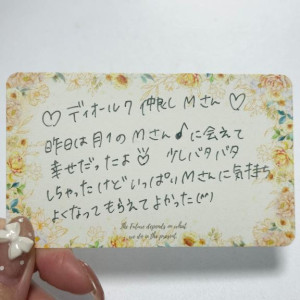 ♡ ディオールク 仲良し Mさん ♡
昨日は月1のMさん♪に会えて
幸せだったよ 少しバタバタ
しちゃったけどいっぱいMさんに気持ち
よくなってもらえてよかった(^^)
The Future depends on what
we do in the present.